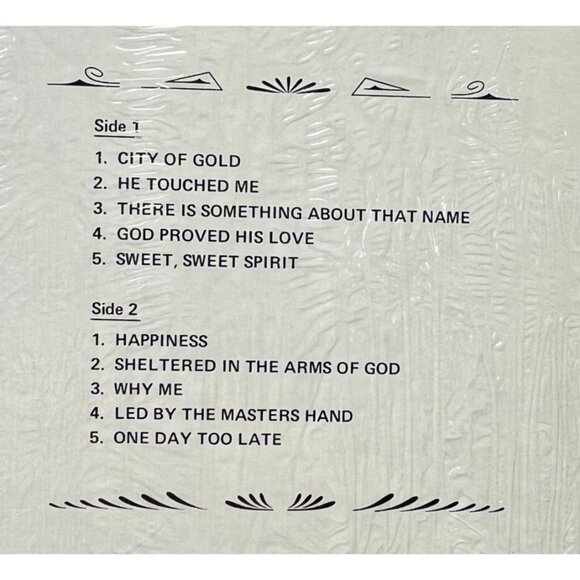 Side 1
1. CITY OF GOLD
2. HE TOUCHED ME
3. THERE IS SOMETHING ABOUT THAT NAME
4. GOD PROVED HIS LOVE
5. SWEET, SWEET SPIRIT
Side 2
1. HAPPINESS
2. SHELTERED IN THE ARMS OF GOD
3. WHY ME
4. LED BY THE MASTERS HAND
5. ONE DAY TOO LATE